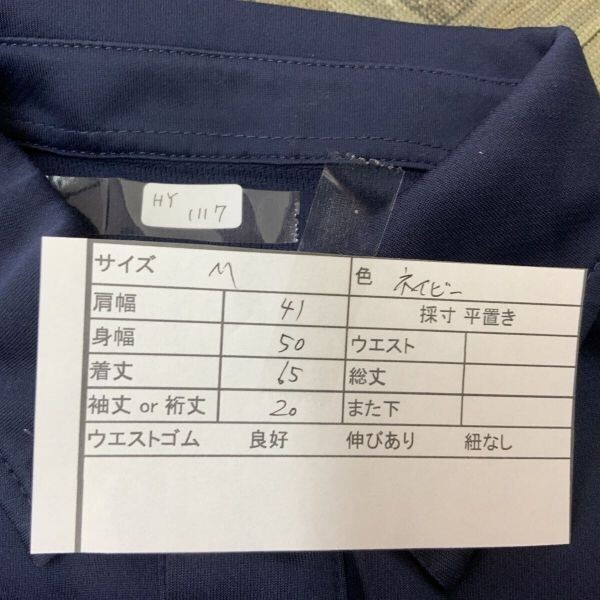 HY
1117
サイズ M 色 ネイビー
肩幅 41 採寸 平置き
身幅 50 ウエスト
着丈 65 総丈
袖丈 or 裄丈 20 また下
ウエストゴム 良好 伸びあり 紐なし